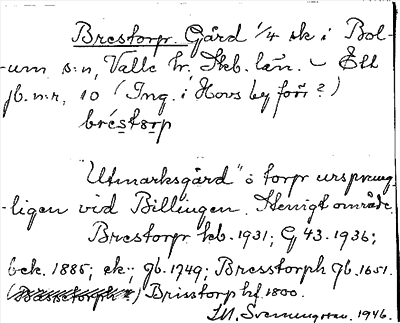 Brestorp. Gård 1/4 sk i Bol-
-um s:n, Valle hr, Skb. län. – Ett
jb. n:r, 10 (Ing. i Hovs by förr?)
bréstɔrp
"Utmarksgård" o torp ursprung-
-ligen vid Billingen. Stenigt område.
Brestorp kb. 1931; G 43. 1936;
bek. 1885; ek; gb. 1749; Bresstorph gb. 1651.
Brisstorp hf. 1800.
1946.